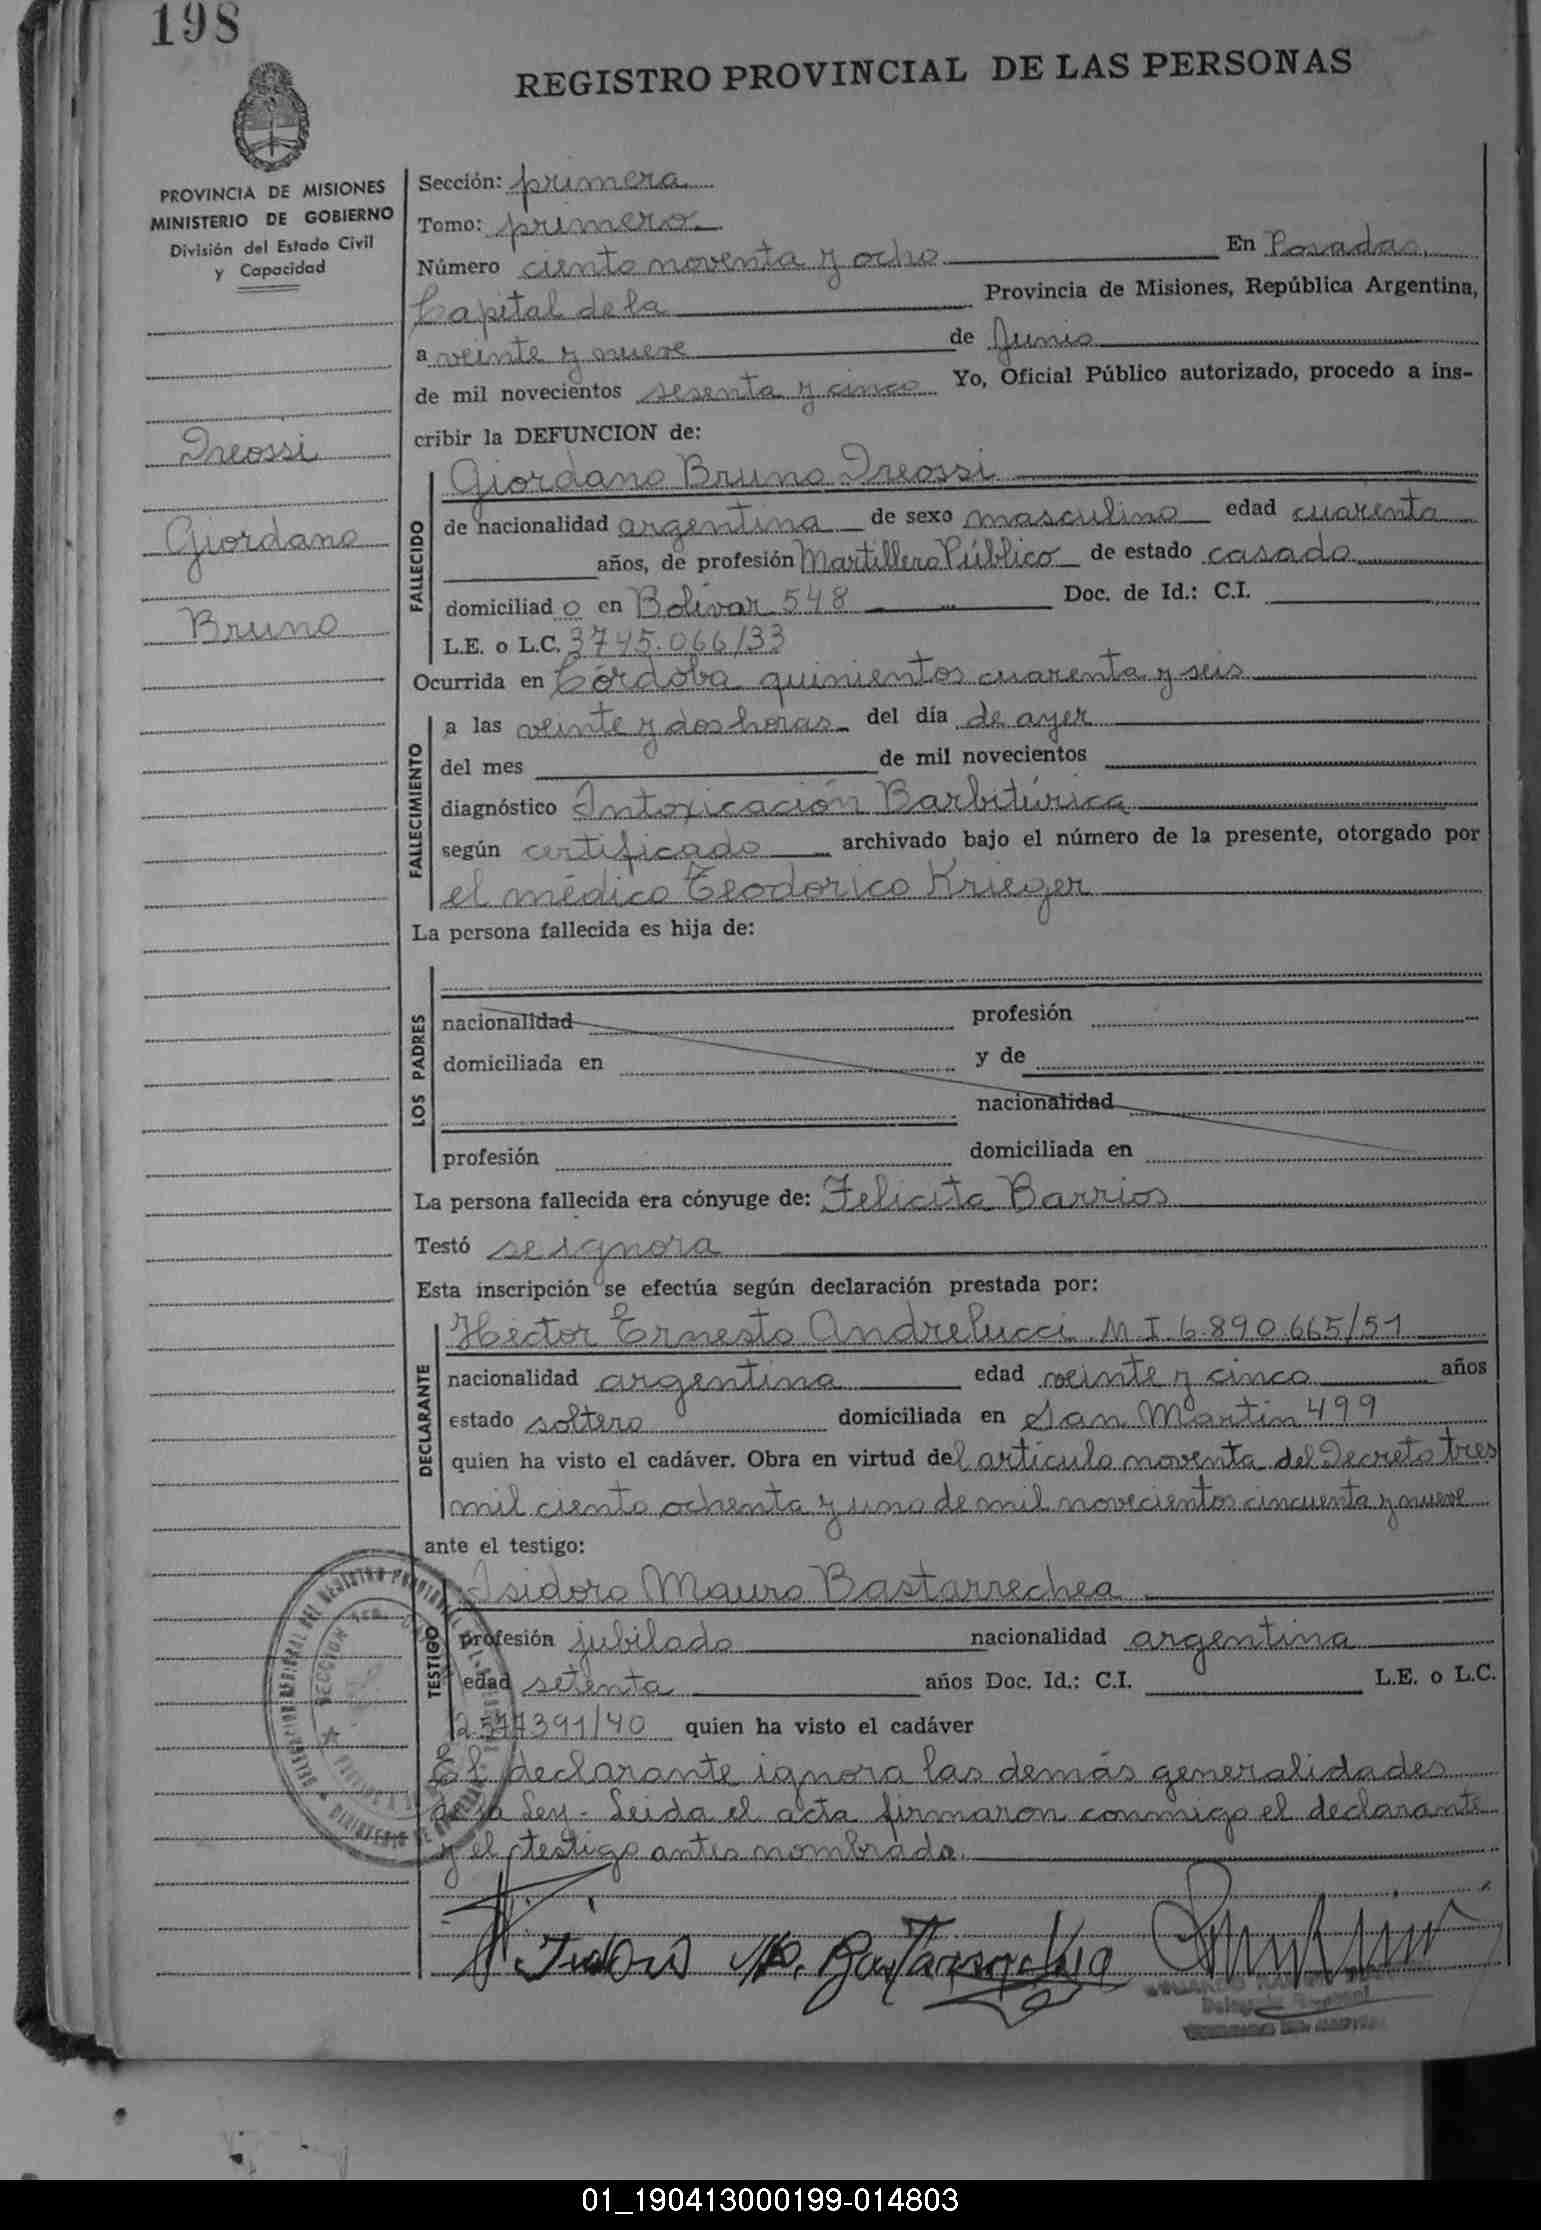 198
REGISTRO PROVINCIAL DE LAS PERSONAS
PROVINCIA DE MISIONES
MINISTERIO DE GOBIERNO
División del Estado Civil
y Capacidad
Treossi
Giordano
Bruno
Sección: primera
Tomo: primero
Número ciento noventa y ocho En Posadas,
Capital de la Provincia de Misiones, República Argentina,
a veinte y nueve de Junio
de mil novecientos sesenta y cinco Yo, Oficial Público autorizado, procedo a ins-
cribir la DEFUNCION de:
FALLECIDO
Giordano Bruno Treossi
de nacionalidad argentina de sexo masculino edad cuarenta
años, de profesión Martillero Público de estado casado
domiciliad o en Bolívar 548 Doc. de Id.: C.I.
L.E. o L.C. 3745.066/33
Ocurrida en Córdoba quinientos cuarenta y seis
FALLECIMIENTO
a las veinte y dos horas del día de ayer
del mes de mil novecientos
diagnóstico Intoxicación Barbitúrica
según certificado archivado bajo el número de la presente, otorgado por
el médico Teodorico Krieger
La persona fallecida es hija de:
LOS PADRES
nacionalidad profesión
domiciliada en y de
nacionalidad
profesión domiciliada en
La persona fallecida era cónyuge de: Felicita Barrios
Testó se ignora
Esta inscripción se efectúa según declaración prestada por:
DECLARANTE
Héctor Ernesto Andrelucci M I 6.890.665/51
nacionalidad argentina edad veinte y cinco años
estado soltero domiciliada en San Martín 499
quien ha visto el cadáver. Obra en virtud del artículo noventa del Decreto tres
mil ciento ochenta y uno de mil novecientos cincuenta y nueve
ante el testigo:
TESTIGO
Isidoro Mauro Bastarrechea
profesión jubilado nacionalidad argentina
edad setenta años Doc. Id.: C.I. L.E. o L.C.
2.577391/40 quien ha visto el cadáver
El declarante ignora las demás generalidades
de la Ley - Leida el acta firmaron conmigo el declarante
y el testigo antes nombrado.
01_190413000199-014803